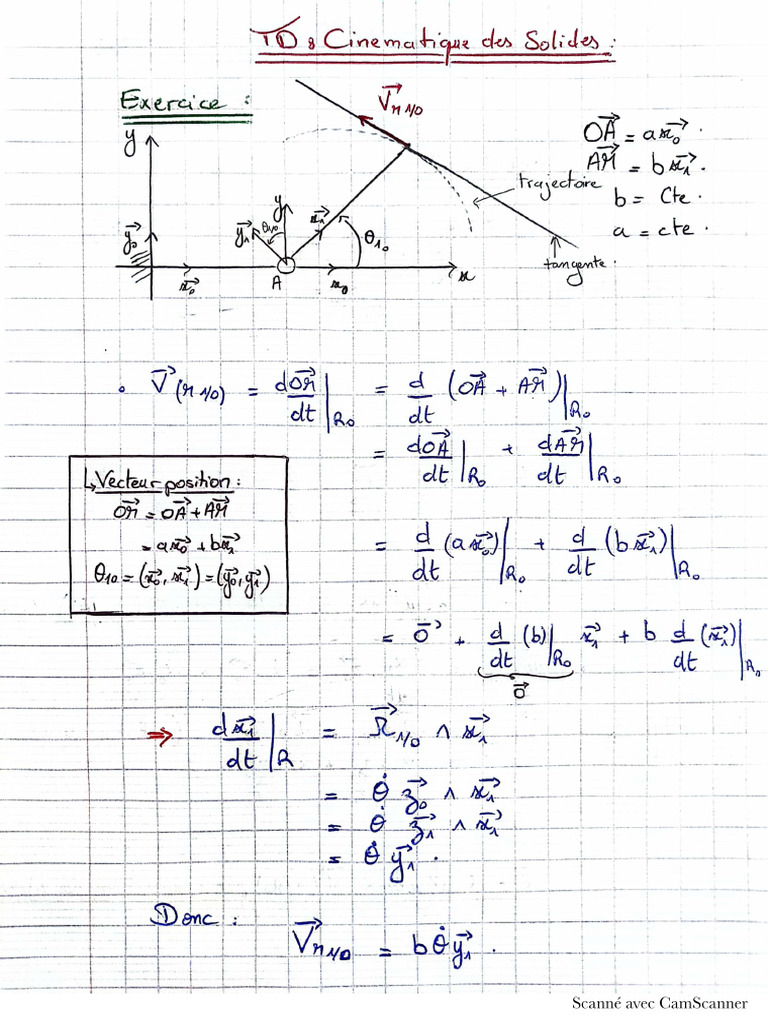 TD : Cinematique des Solides :
Exercice :
V⃗ M 1/0
y
OA⃗ = a x⃗₀ .
AM⃗ = b x⃗₁ .
b = Cte .
a = cte .
trajectoire
y
y⃗₀
y⃗₁
θ₁₀
x⃗₁
θ₁₀
x⃗₀
A
x₀
x
tangente.
• V⃗ (M 1/0) = dOM⃗/dt |R₀ = d/dt (OA⃗ + AM⃗)|R₀
= dOA⃗/dt |R₀ + dAM⃗/dt |R₀
↳ Vecteur position :
OM⃗ = OA⃗ + AM⃗
= a x⃗₀ + b x⃗₁
θ₁₀ = (x⃗₀, x⃗₁) = (y⃗₀, y⃗₁)
= d/dt (a x⃗₀)|R₀ + d/dt (b x⃗₁)|R₀
= 0⃗ + d/dt (b)|R₀ x⃗₁ + b d/dt (x⃗₁)|R₀
0⃗
⇒ dx⃗₁/dt |R = Ω⃗ 1/0 ∧ x⃗₁
= θ̇ z⃗₀ ∧ x⃗₁
= θ̇ z⃗₁ ∧ x⃗₁
= θ̇ y⃗₁ .
Donc :
V⃗ M 1/0 = b θ̇ y⃗₁ .
Scanné avec CamScanner